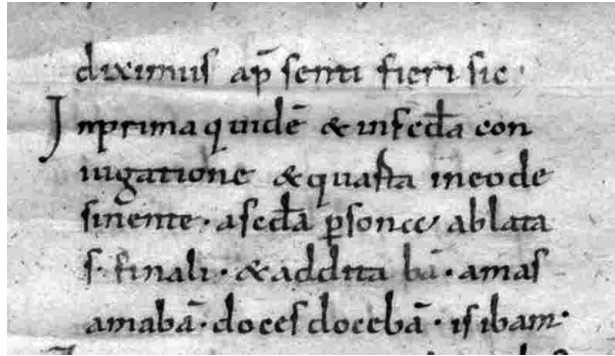 diximus ap̄senti fieri sic·
Inprima quidē & insecd̄a con
iugatione & quarta ineo de
sinente· asecd̄a p̄sonae ablata
s· finali· & addita bā· amas
amabā· doces docebā· is ibam·